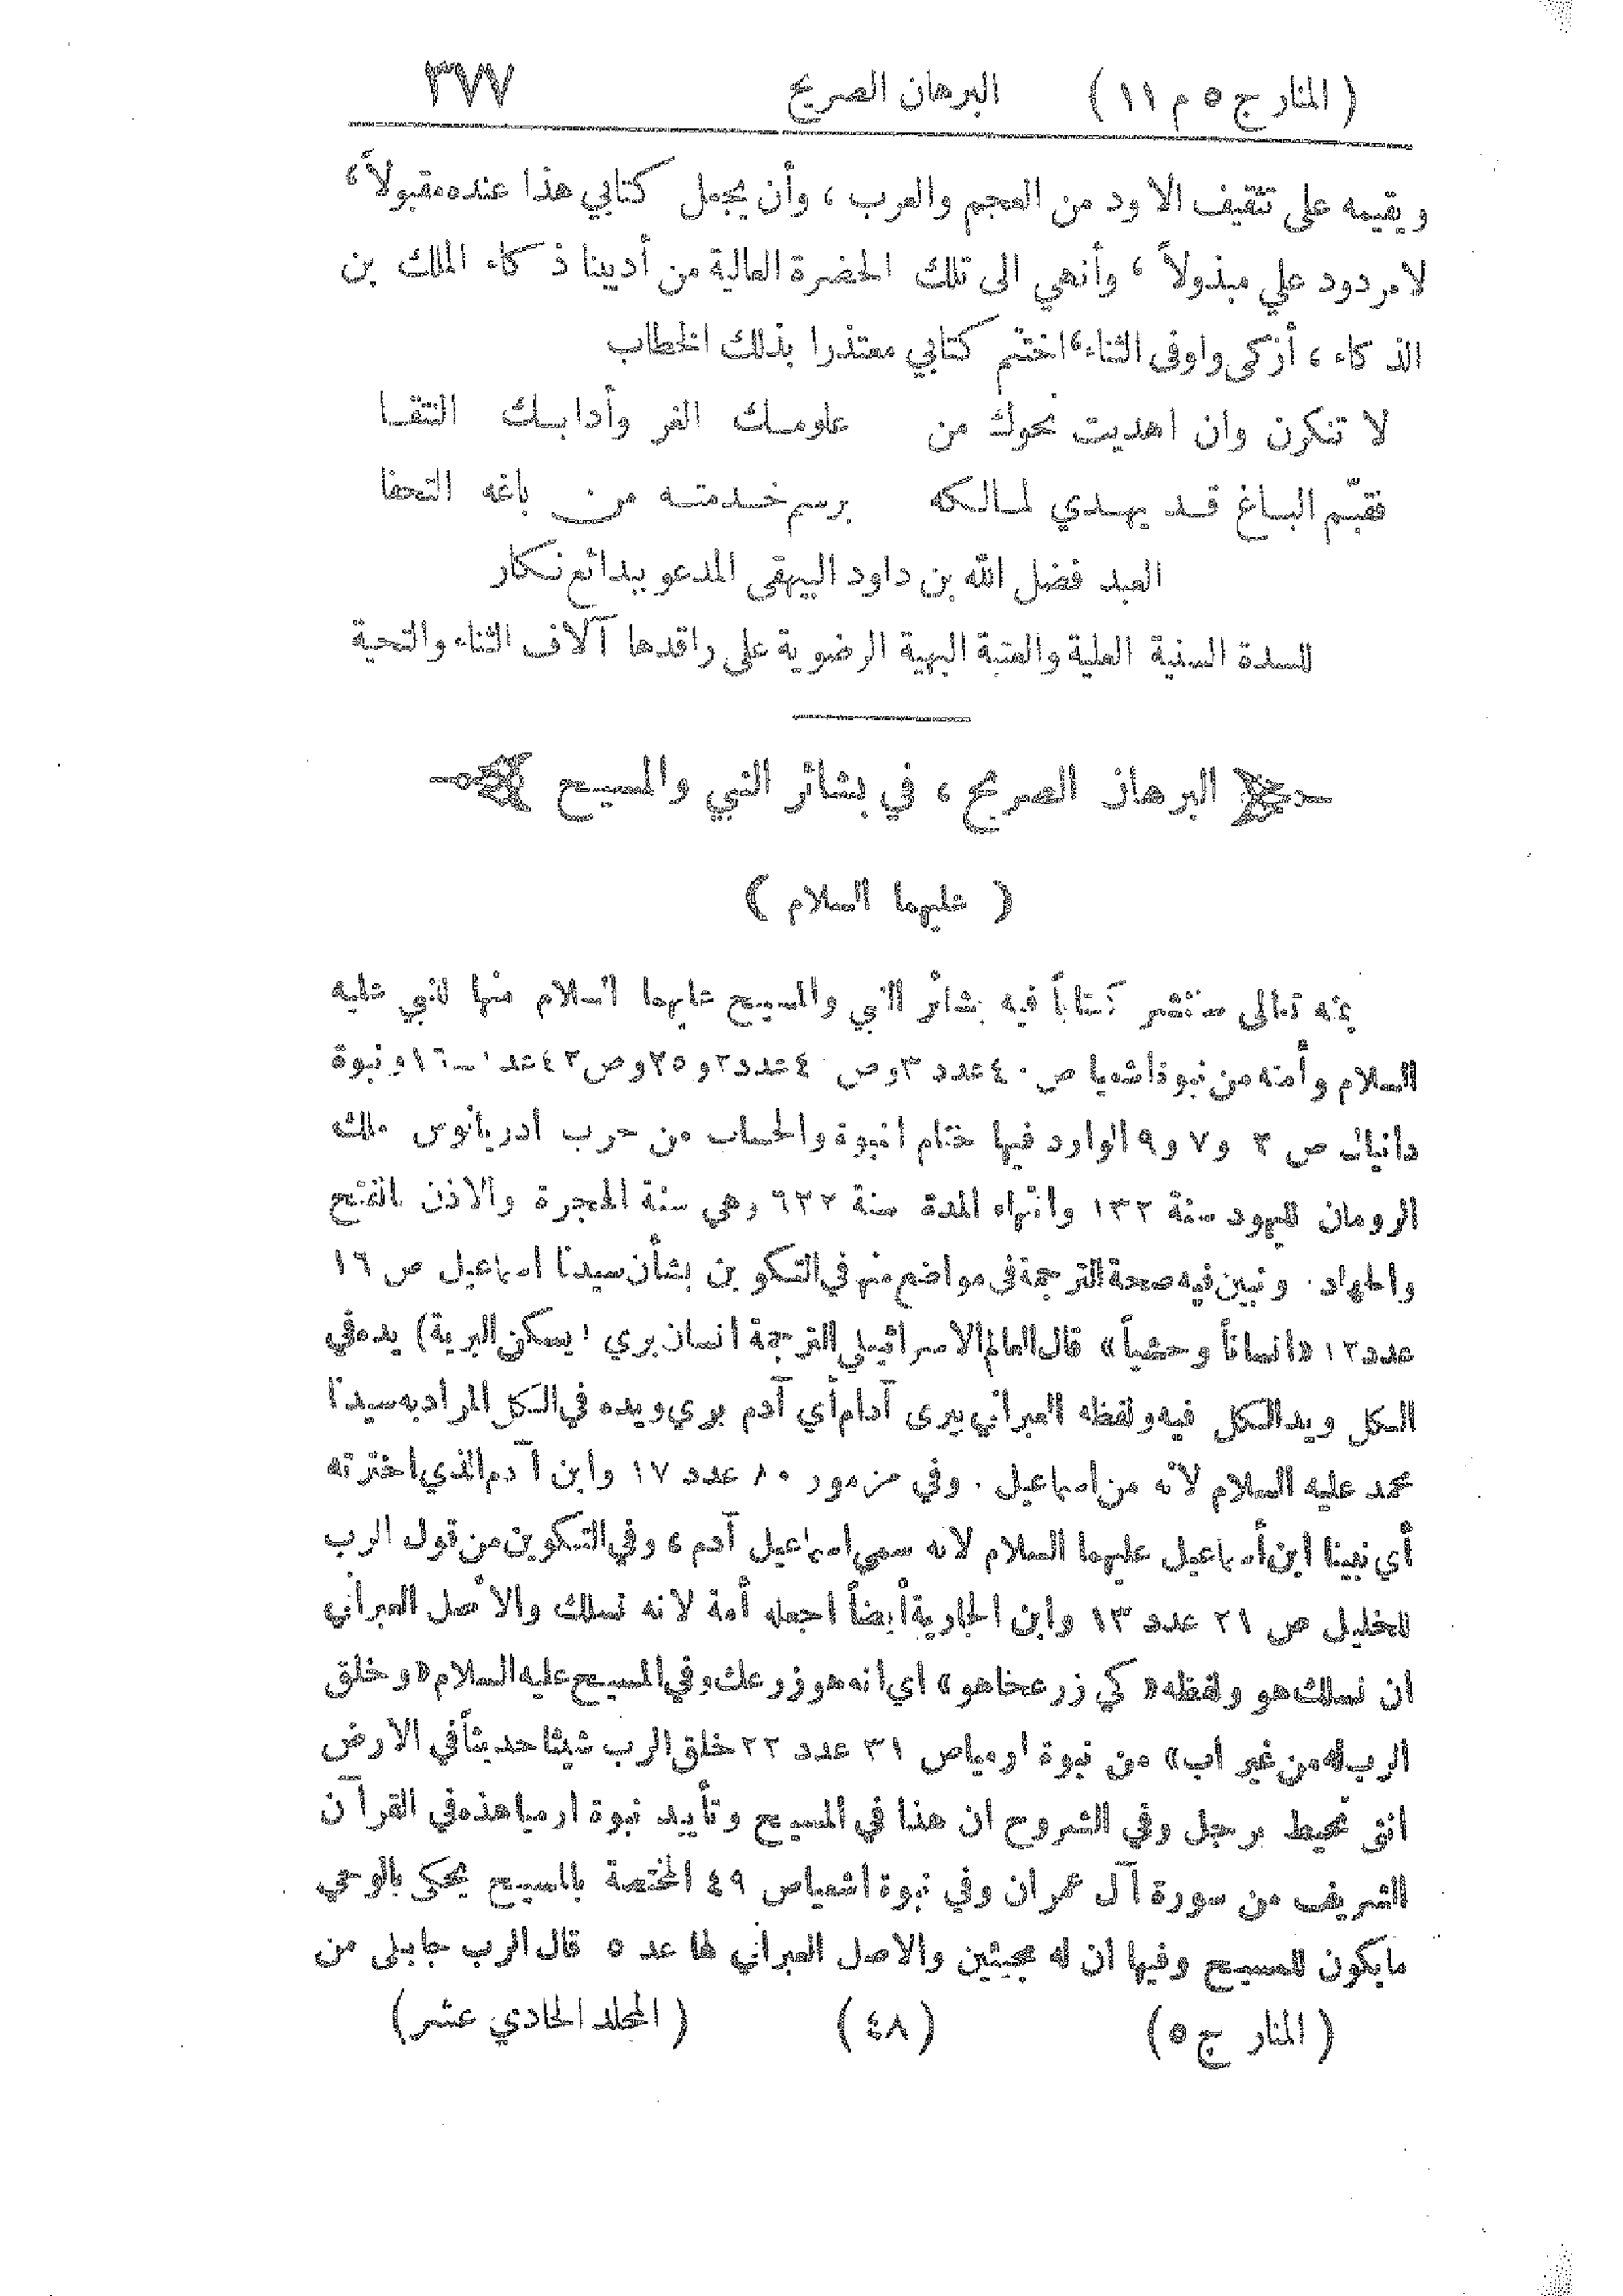 ( المنار ج ٥ م ١١ ) البرهان الصريح ٣٧٧
ويقيمه على تثقيف الاود من العجم والعرب ، وأن يجعل كتابي هذا عنده مقبولاً ،
لا مردود علي مبذولاً ، وأنهي الى تلك الحضرة العالية من أديبنا ذكاء الملك بن
الذكاء ، أزكى واوفى الثناء ، اختتم كتابي معتذرا بذلك الخطاب
لا تنكرن وان اهديت نحوك من علومـك الغر وأدابـك النتفـا
فقيّم البـاغ قـد يهـدي لمـالكه برسم خـدمتـه مـن باغه التحفا
العبد فضل الله بن داود البيهقى المدعو ببدائع نكار
للسدة السنية العلية والعتبة البهية الرضوية على راقدها آلاف الثناء والتحية
البرهان الصريح ، في بشائر النبي والمسيح
( عليهما السلام )
بمنه تعالى سننشر كتاباً فيه بشائر النبي والمسيح عليهما السلام منها للنبي عليه
السلام وأمته من نبوة اشعيا ص ٤٠ عدد ٣ وص ٤٠ عدد ٢ و ٢٥ وص ٤٢ عدد ١ ـ ١٦ ونبوة
دانيال ص ٢ و ٧ و ٩ الوارد فيها ختام النبوة والحساب من حرب أدريانوس ملك
الرومان لليهود سنة ١٣٢ وانتهاء المدة سنة ٦٢٢ وهي سنة الهجرة والاذن بالفتح
والجهاد . ونبين فيه صحة الترجمة في مواضع منها في التكوين بشأن سيدنا اسماعيل ص ١٦
عدد ١٢ «انساناً وحشياً» قال العالم الاسرائيلي الترجمة انسان بري ( يسكن البرية) يده في
الكل ويد الكل فيه ولفظه العبراني بيرى آدام أي آدم بري ويده في الكل المراد به سيدنا
محمد عليه السلام لانه من اسماعيل . وفي مزمور ٨٠ عدد ١٧ وابن آدم الذي اخترته
أي نبينا ابن أسماعيل عليهما السلام لانه سمي اسماعيل آدم ، وفي التكوين من قول الرب
للخليل ص ٢١ عدد ١٣ وابن الجارية أيضاً اجعله أمة لانه نسلك والاصل العبراني
ان نسلك هو ولفظه « كي زرعخا هو» اي انه هو زرعك وفي المسيح عليه السلام «وخلق
الرب له من غير اب» من نبوة ارمياص ٣١ عدد ٢٢ خلق الرب شيئا حديثاً في الارض
انثى تحيط برجل وفي الشروح ان هذا في المسيح وتأييد نبوة ارميا هذه في القرآن
الشريف من سورة آل عمران وفي نبوة اشعياص ٤٩ المختصة بالمسيح يحكى بالوحي
مايكون للمسيح وفيها ان له مجيئين والاصل العبراني لها عد ٥ قال الرب جابلى من
( المنار ج ٥ ) ( ٤٨ ) ( المجلد الحادي عشر )